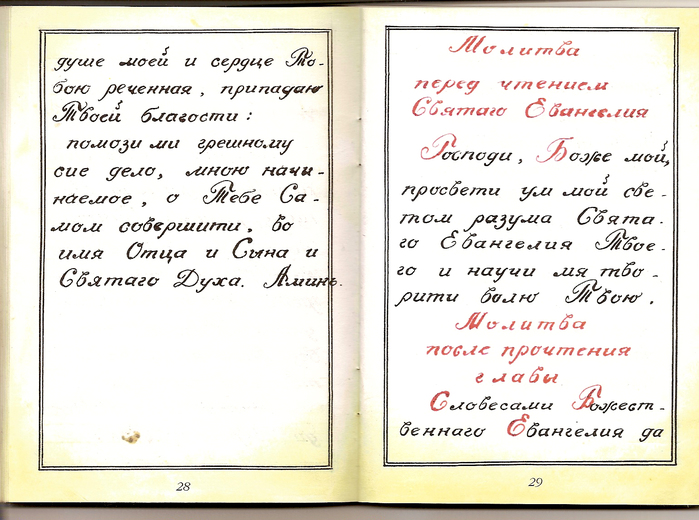 душе моей и сердце То-
бою реченная, припадаю
Твоей благости:
помози ми грешному
сие дело, мною начи-
наемое, о Тебе Са-
мом совершити, во
имя Отца и Сына и
Святаго Духа. Аминь.
28
Молитва
перед чтением
Святаго Евангелия
Господи, Боже мой,
просвети ум мой све-
том разума Свята-
го Евангелия Твое-
го и научи мя тво-
рити волю Твою.
Молитва
после прочтения
главы
Словесами Божест-
веннаго Евангелия да
29